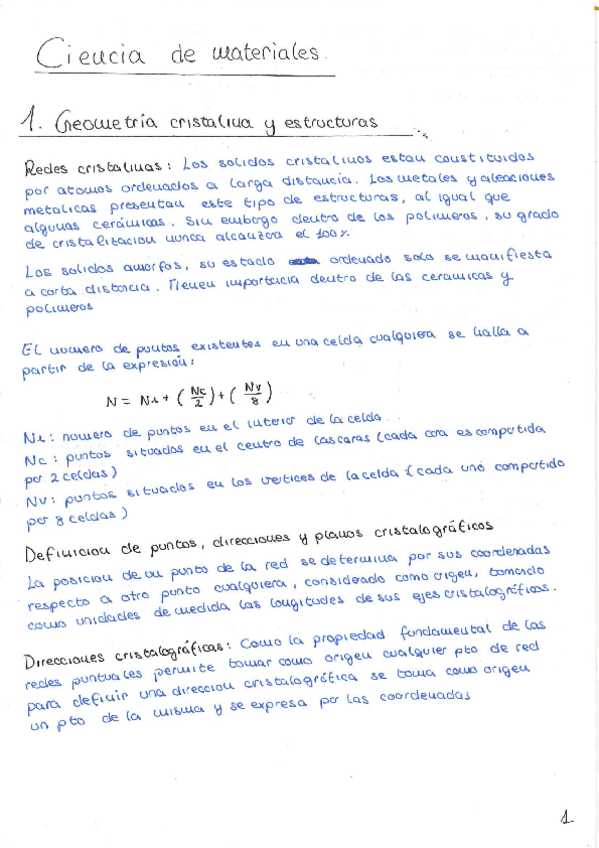 Ciencia de materiales.
1. Geometría cristalina y estructuras
Redes cristalinas: Los solidos cristalinos estan constituidos
por atomos ordenados a larga distancia. Los metales y aleaciones
metalicas presentan este tipo de estructuras, al igual que
algunas cerámicas. Sin embargo dentro de los polimeros, su grado
de cristalizacion nunca alcanza el 100%
Los solidos amorfos, su estado ordenado solo se manifiesta
a corta distancia. Tienen importancia dentro de las ceramicas y
polimeros
El numero de puntos existentes en una celda cualquiera se halla a
partir de la expresión:
N = Ni + (Nc/2) + (Nv/8)
Ni: numero de puntos en el interior de la celda.
Nc: puntos situados en el centro de las caras (cada cara es compartida
por 2 celdas)
Nv: puntos situados en los vertices de la celda (cada uno compartido
por 8 celdas)
Definicion de puntos, direcciones y planos cristalográficos
La posicion de un punto de la red se determina por sus coordenadas
respecto a otro punto cualquiera, considerado como origen, tomando
como unidades de medida las longitudes de sus ejes cristalográficos.
Direcciones cristalográficas: Como la propiedad fundamental de las
redes puntuales permite tomar como origen cualquier pto de red
para definir una direccion cristalográfica se toma como origen
un pto de la misma y se expresa por las coordenadas
1